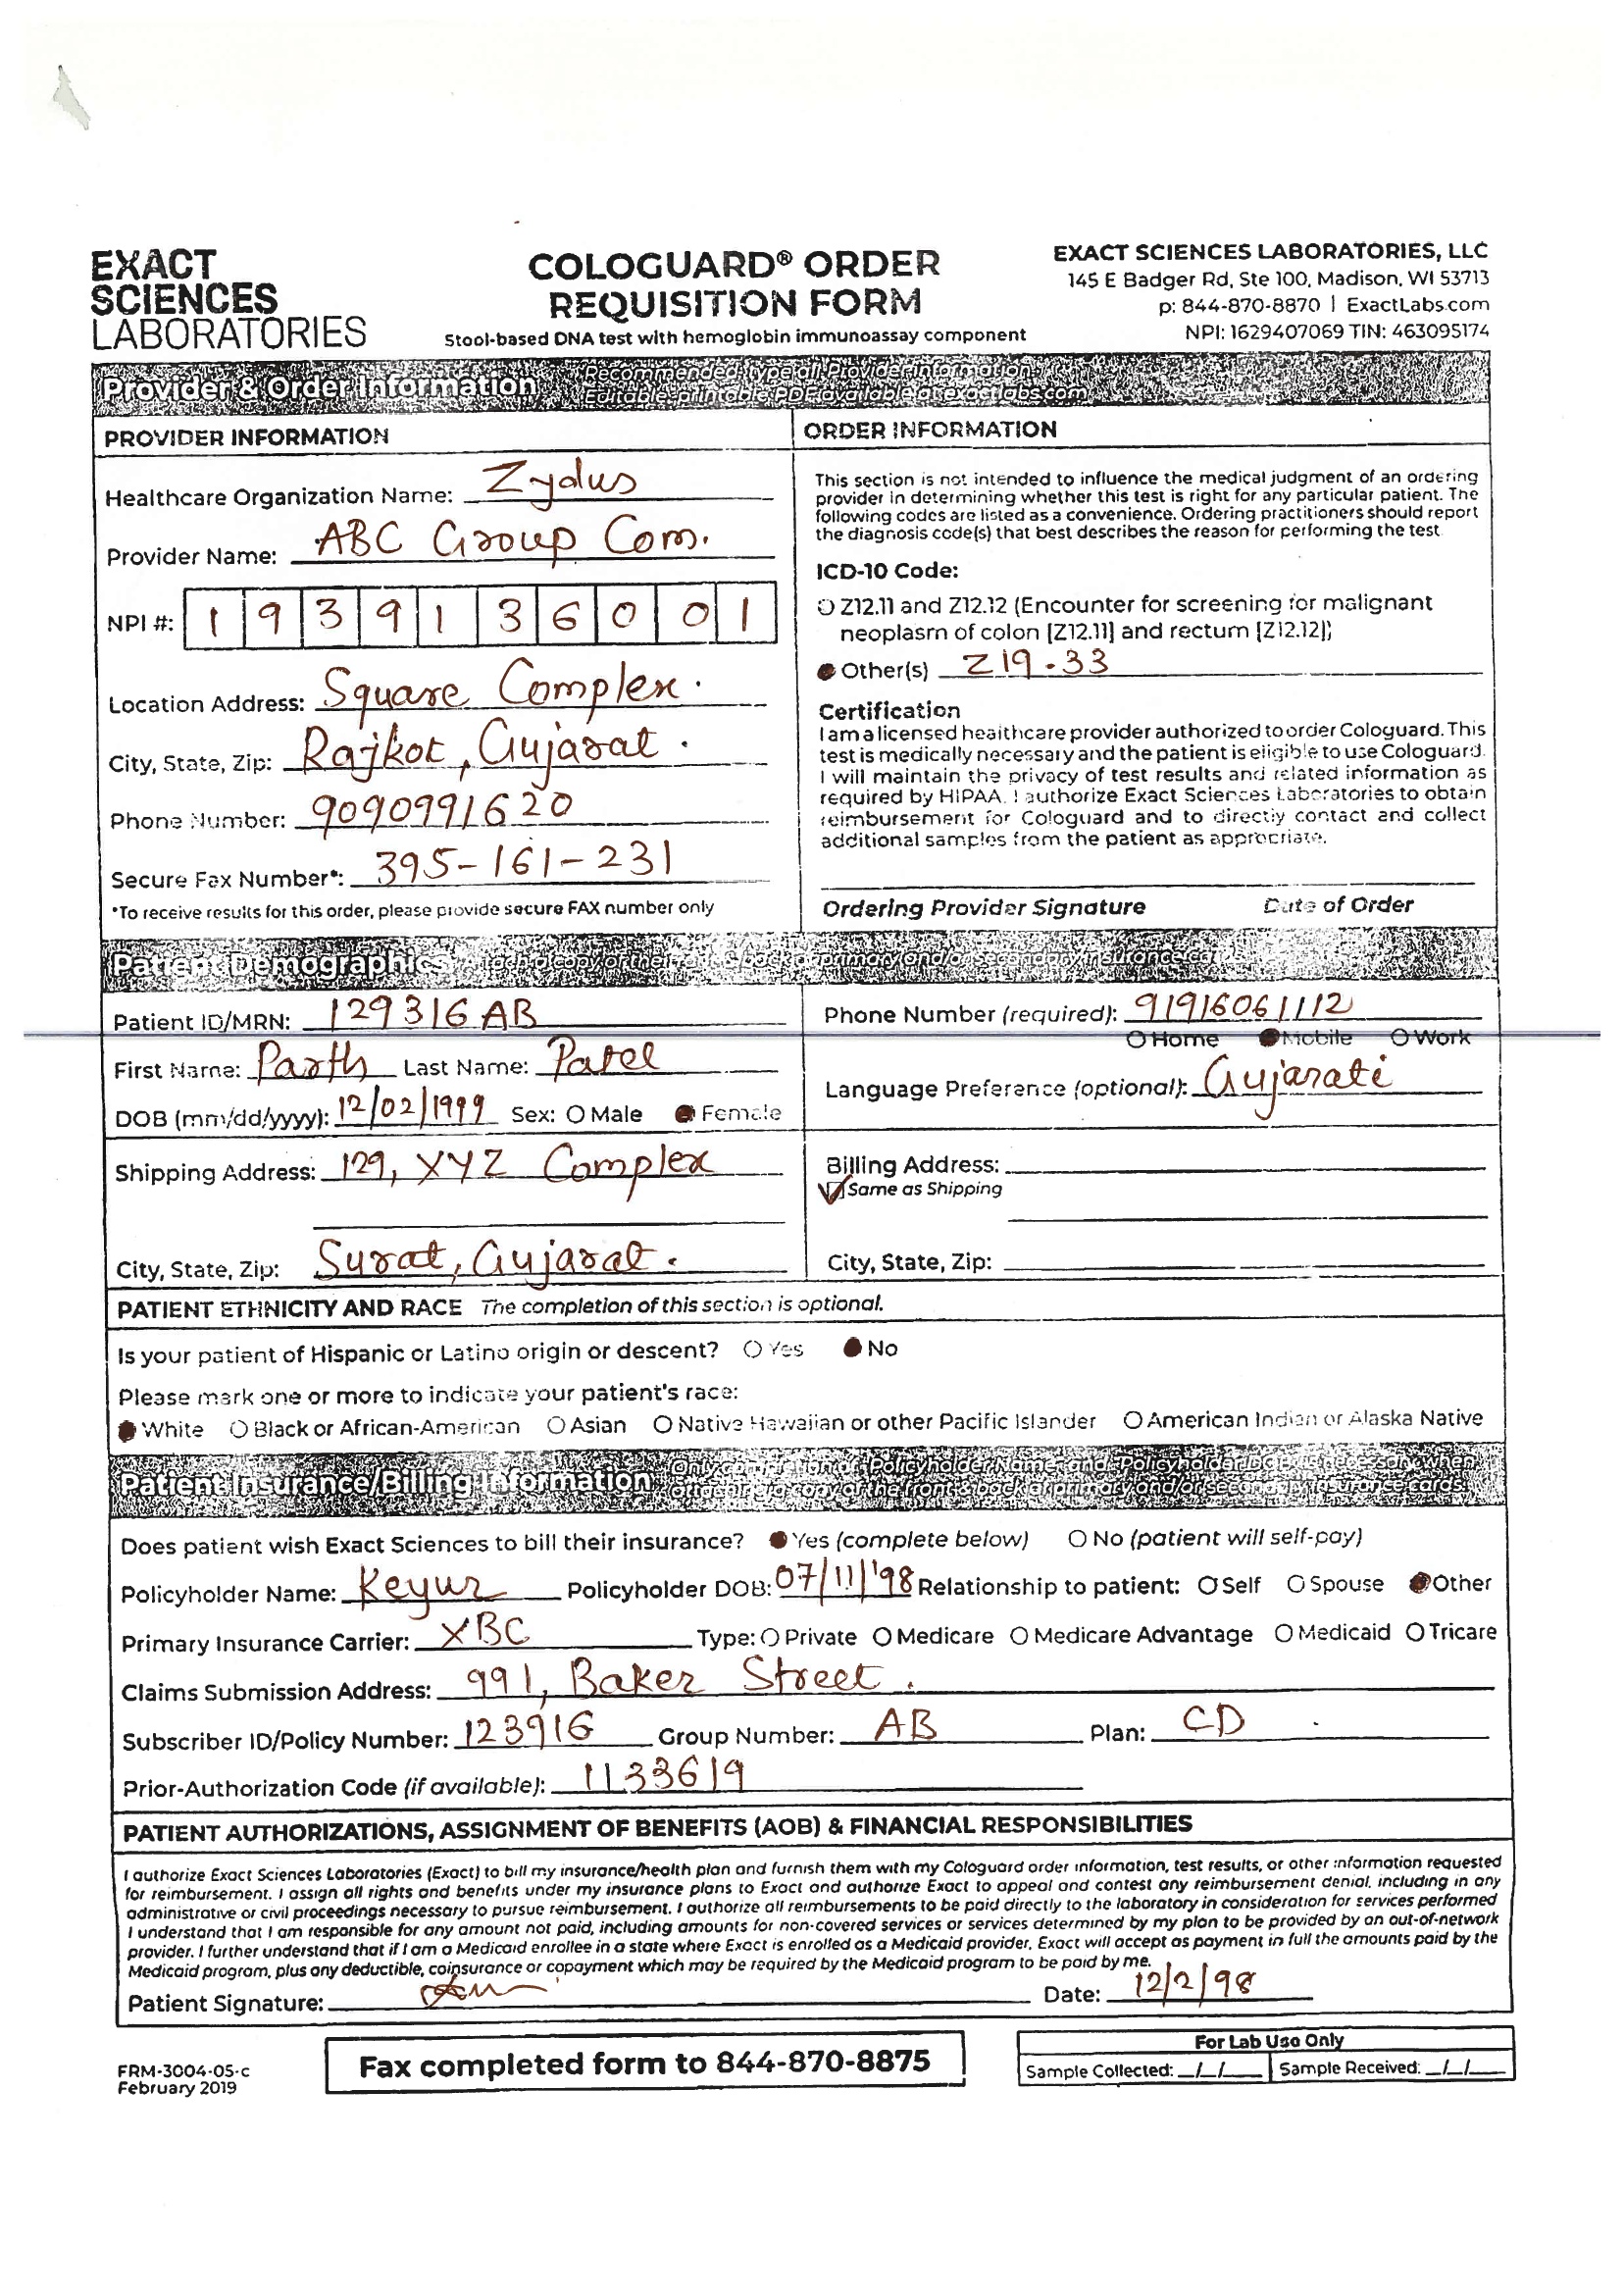 EXACT
SCIENCES
LABORATORIES
COLOGUARD® ORDER
REQUISITION FORM
Stool-based DNA test with hemoglobin immunoassay component
EXACT SCIENCES LABORATORIES, LLC
145 E Badger Rd, Ste 100, Madison, WI 53713
p: 844-870-8870 | ExactLabs.com
NPI: 1629407069 TIN: 463095174
Provider & Order Information Recommended: type all Provider information.
Editable, printable PDF available at exactlabs.com
PROVIDER INFORMATION
Healthcare Organization Name: Zydus
Provider Name: ABC Group Com.
NPI #: 1 9 3 9 1 3 6 0 0 1
Location Address: Square Complex.
City, State, Zip: Rajkot, Gujarat.
Phone Number: 9090991620
Secure Fax Number*: 395-161-231
*To receive results for this order, please provide secure FAX number only
ORDER INFORMATION
This section is not intended to influence the medical judgment of an ordering
provider in determining whether this test is right for any particular patient. The
following codes are listed as a convenience. Ordering practitioners should report
the diagnosis code(s) that best describes the reason for performing the test.
ICD-10 Code:
Z12.11 and Z12.12 (Encounter for screening for malignant
neoplasm of colon [Z12.11] and rectum [Z12.12])
Other(s) Z19.33
Certification
I am a licensed healthcare provider authorized to order Cologuard. This
test is medically necessary and the patient is eligible to use Cologuard.
I will maintain the privacy of test results and related information as
required by HIPAA. I authorize Exact Sciences Laboratories to obtain
reimbursement for Cologuard and to directly contact and collect
additional samples from the patient as appropriate.
Ordering Provider Signature Date of Order
Patient Demographics Attach a copy of the front & back of primary and/or secondary insurance cards
Patient ID/MRN: 129316AB
First Name: Parth Last Name: Patel
DOB (mm/dd/yyyy): 12/02/1999 Sex: Male Female
Phone Number (required): 91916061112
Home Mobile Work
Language Preference (optional): Gujarati
Shipping Address: 129, XYZ Complex
City, State, Zip: Surat, Gujarat.
Billing Address:
Same as Shipping
City, State, Zip:
PATIENT ETHNICITY AND RACE The completion of this section is optional.
Is your patient of Hispanic or Latino origin or descent? Yes No
Please mark one or more to indicate your patient's race:
White Black or African-American Asian Native Hawaiian or other Pacific Islander American Indian or Alaska Native
Patient Insurance/Billing Information Only completion of Policyholder Name and Policyholder DOB is necessary when
attaching a copy of the front & back of primary and/or secondary insurance cards.
Does patient wish Exact Sciences to bill their insurance? Yes (complete below) No (patient will self-pay)
Policyholder Name: Keyur Policyholder DOB: 07/11/'98 Relationship to patient: Self Spouse Other
Primary Insurance Carrier: XBC Type: Private Medicare Medicare Advantage Medicaid Tricare
Claims Submission Address: 991, Baker Street.
Subscriber ID/Policy Number: 123916 Group Number: AB Plan: CD
Prior-Authorization Code (if available): 1133619
PATIENT AUTHORIZATIONS, ASSIGNMENT OF BENEFITS (AOB) & FINANCIAL RESPONSIBILITIES
I authorize Exact Sciences Laboratories (Exact) to bill my insurance/health plan and furnish them with my Cologuard order information, test results, or other information requested
for reimbursement. I assign all rights and benefits under my insurance plans to Exact and authorize Exact to appeal and contest any reimbursement denial, including in any
administrative or civil proceedings necessary to pursue reimbursement. I authorize all reimbursements to be paid directly to the laboratory in consideration for services performed
I understand that I am responsible for any amount not paid, including amounts for non-covered services or services determined by my plan to be provided by an out-of-network
provider. I further understand that if I am a Medicaid enrollee in a state where Exact is enrolled as a Medicaid provider, Exact will accept as payment in full the amounts paid by the
Medicaid program, plus any deductible, coinsurance or copayment which may be required by the Medicaid program to be paid by me.
Patient Signature: Date: 12/2/98
FRM-3004-05-c
February 2019
Fax completed form to 844-870-8875
For Lab Use Only
Sample Collected: _/_/__ Sample Received: _/_/__